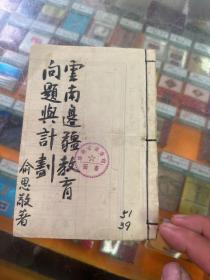 雲南邊疆教育
問題與計劃
俞思敬著
51
39